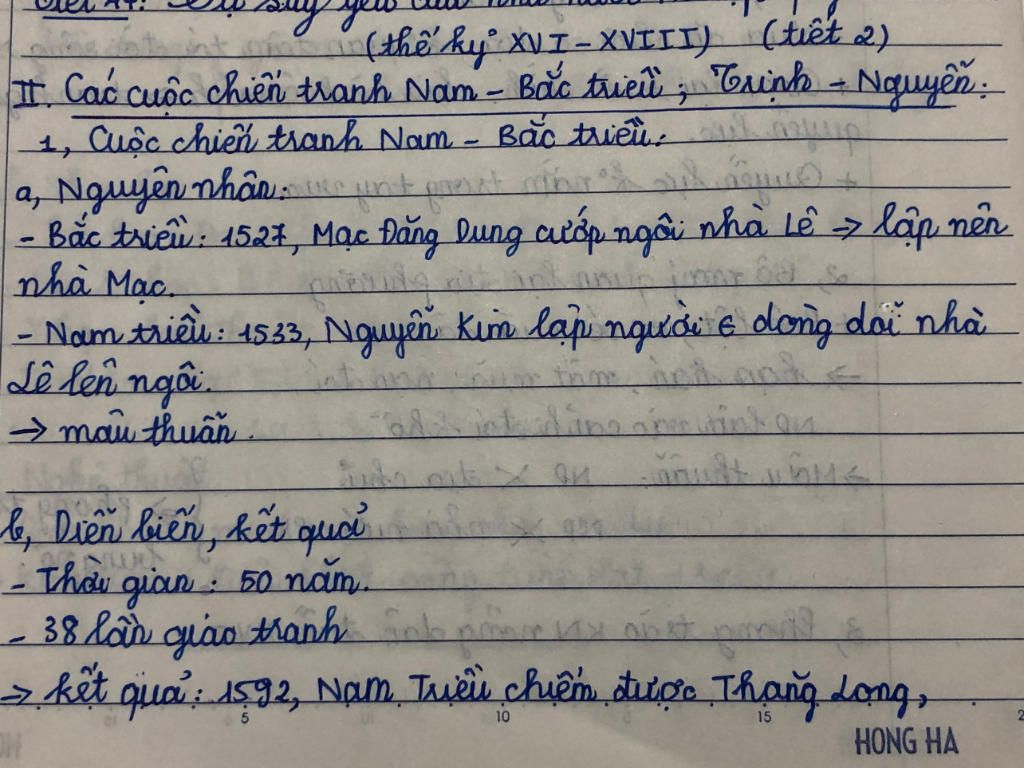 suy yếu của nhà nước
(thế kỷ XVI - XVIII) (tiết 2)
II. Các cuộc chiến tranh Nam - Bắc triều; Trịnh - Nguyễn:
1, Cuộc chiến tranh Nam - Bắc triều:
a, Nguyên nhân:
- Bắc triều: 1527, Mạc Đăng Dung cướp ngôi nhà Lê → lập nên
nhà Mạc.
- Nam triều: 1533, Nguyễn Kim lập người ∈ dòng dõi nhà
Lê lên ngôi.
→ mâu thuẫn.
b, Diễn biến, kết quả
- Thời gian: 50 năm.
- 38 lần giao tranh
→ kết quả: 1592, Nam Triều chiếm được Thăng Long,
5 10 15 2
HONG HA